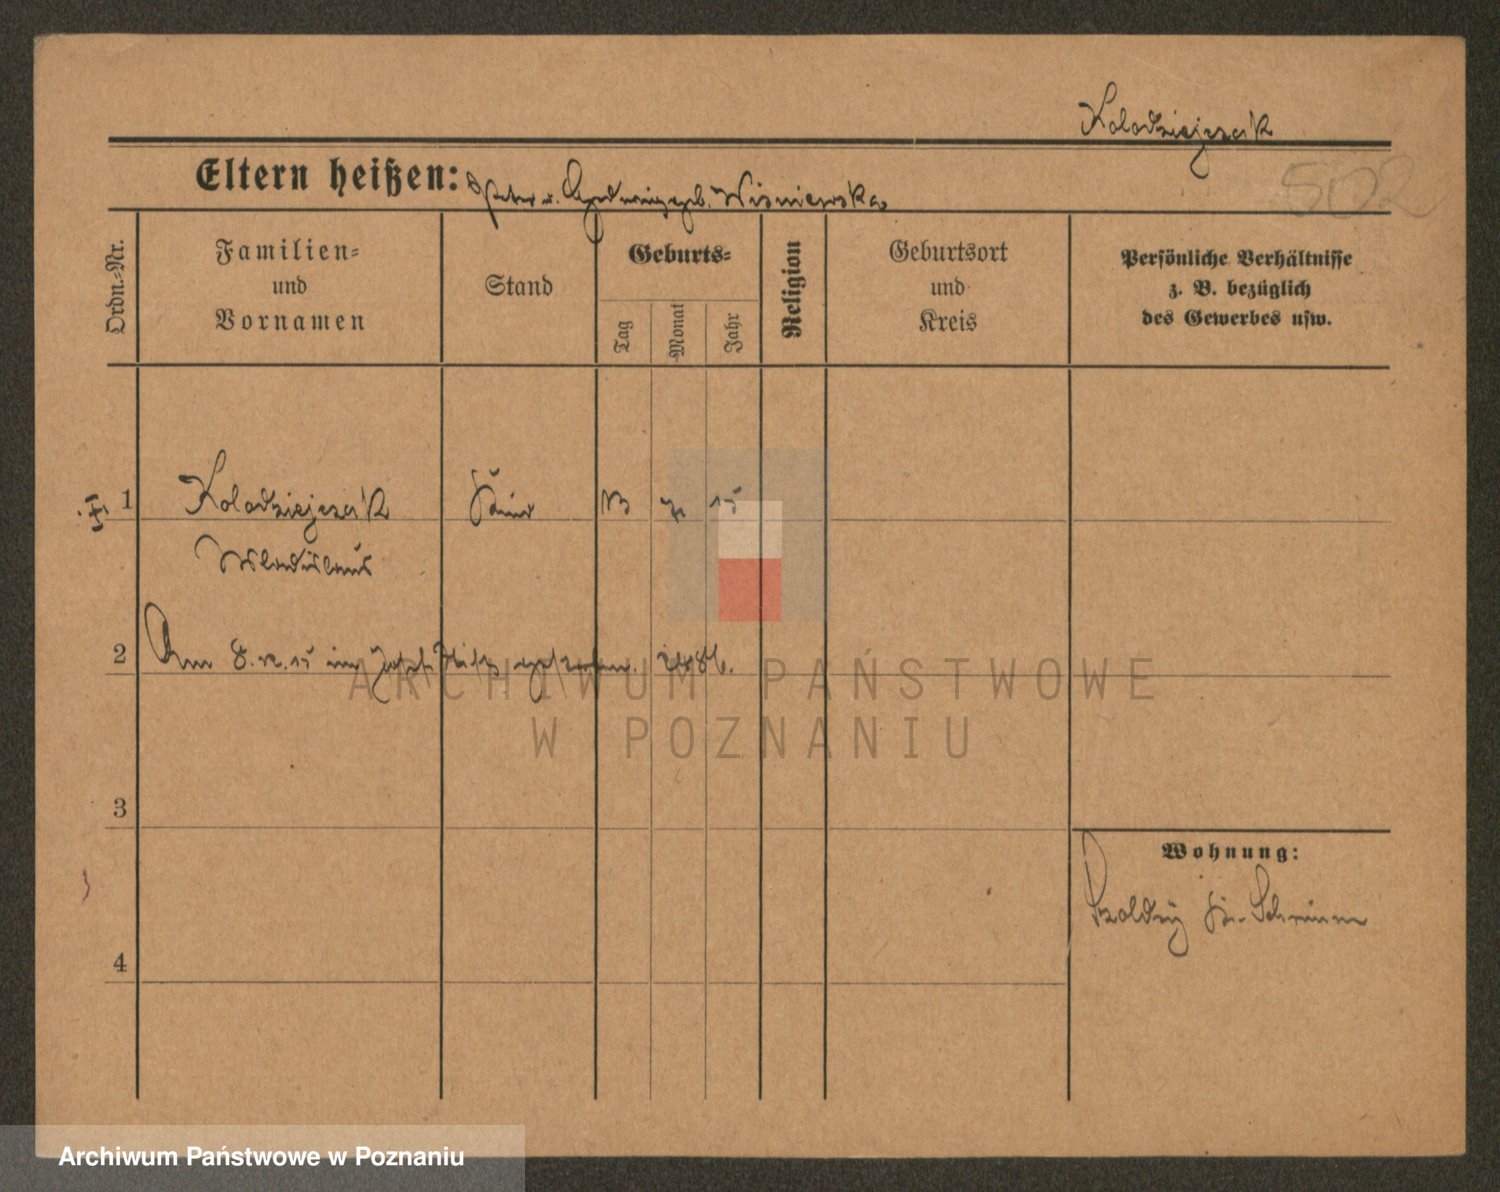 Kolodziejczak
502
Eltern heißen: Peter u. Hedwig geb. Wisniewska
Ordn.-Nr.
Familien-
und
Vornamen
Stand
Geburts-
Tag
Monat
Jahr
Religion
Geburtsort
und
Kreis
Persönliche Verhältnisse
z. B. bezüglich
des Gewerbes usw.
1 Kolodziejczak 13 7. 15
Wladislaus
2 Am 8.12.15 im gestorben.
ARCHIWUM PAŃSTWOWE
W POZNANIU
3
Wohnung:
Kr. Schrimm
4
Archiwum Państwowe w Poznaniu